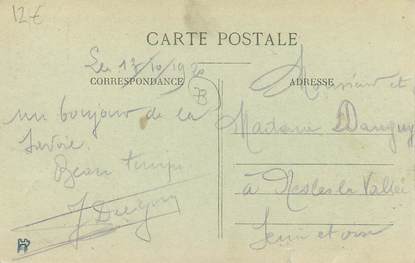 12€
CARTE POSTALE
Le 13/10/1920
CORRESPONDANCE
ADRESSE
73
Monsieur et
un bonjour de la
Madame Danguy
Savoie.
Beau temps
à Nesles la Vallée
Seine et oise